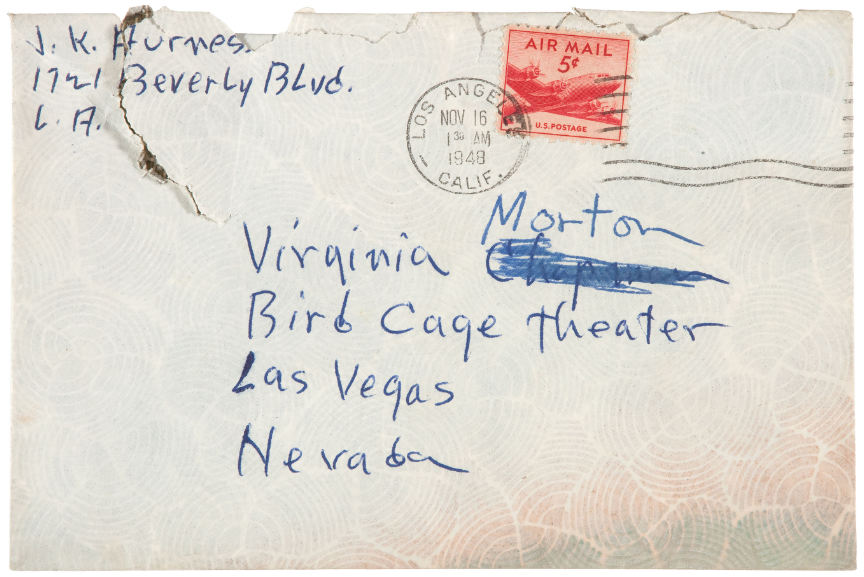 J. K. Hurnes.
1721 Beverly Blvd.
L. A.
AIR MAIL
5¢
U.S. POSTAGE
LOS ANGELES
NOV 16
1 30 AM
1948
CALIF.
Morton
Virginia Chapman
Bird Cage theater
Las Vegas
Nevada